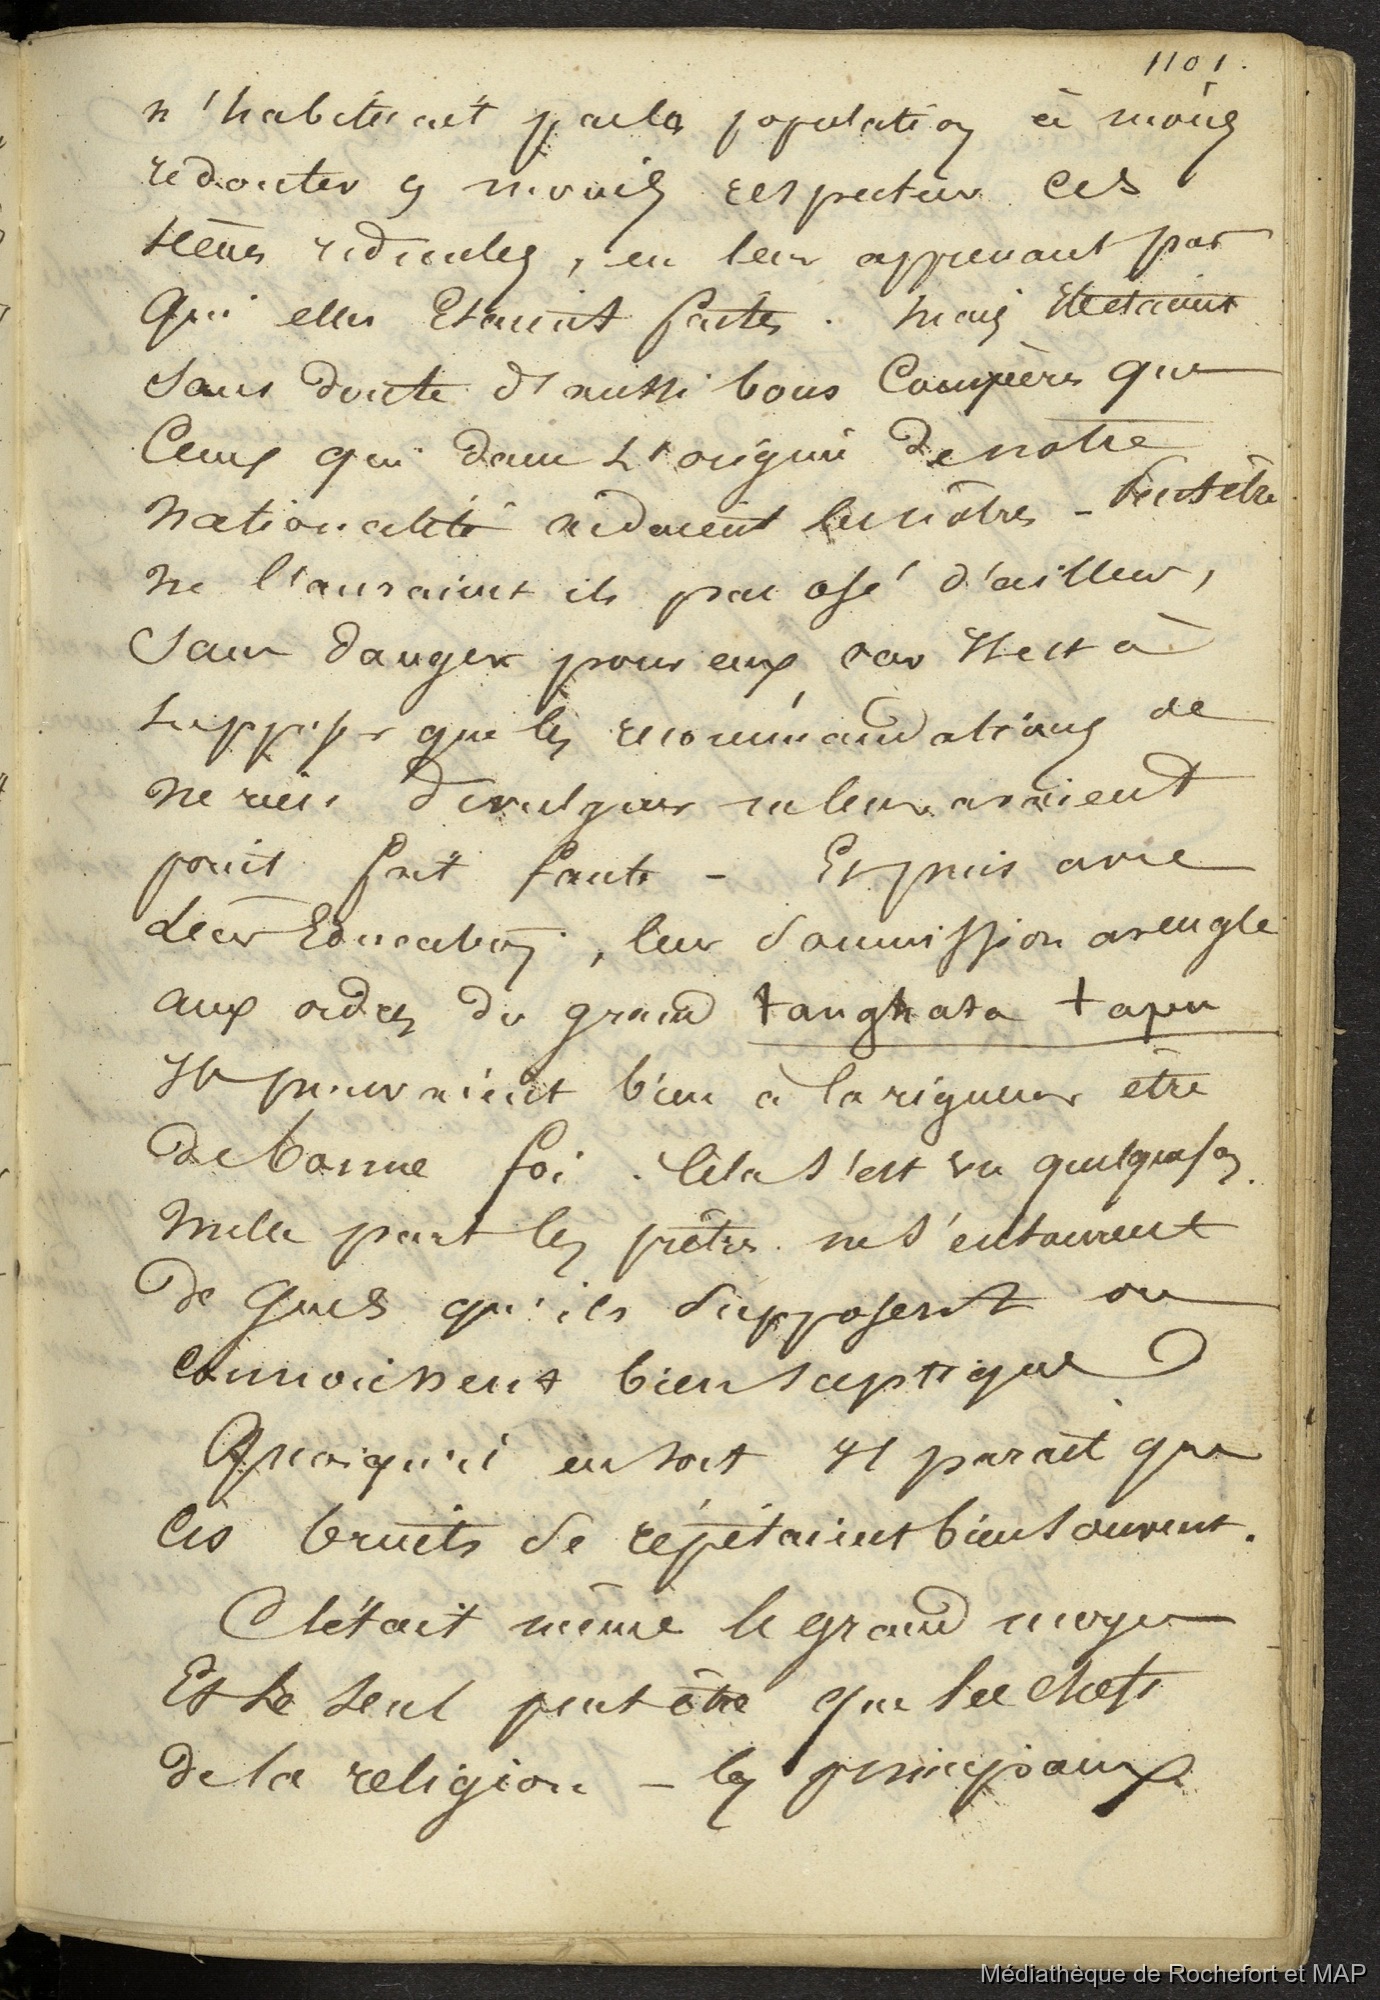 1101.
n'habituait pas la population à moins
redouter & moins respecter ces
scènes ridicules, en leur apprenant par
qui elles étaient faites. Mais Ils étaient
sans doute d'aussi bons Compères que
Ceux qui dans L'origine de notre
nationalité aidaient les nôtres - Peut être
ne l'auraient ils pas osé d'ailleurs,
Sans danger pour eux car Il est à
supposer que les recommandations de
ne rien divulguer ne leur avaient
point fait faute - Et puis avec
Leur Education, leur soumission aveugle
aux ordres du grand tanghata tapu
Ils pouvaient bien à la rigueur être
de bonne foi. Cela s'est vu quelquefois.
Nulle part les prêtres ne s'entourent
de Gens qu'ils supposent ou
connaissent bien sceptiques
Quoiqu'il en soit Il parait que
Ces bruits se répétaient bien souvent.
C'était même le grand moyen
Et Le seul peut être que les chefs
de la religion - les principaux
Médiathèque de Rochefort et MAP